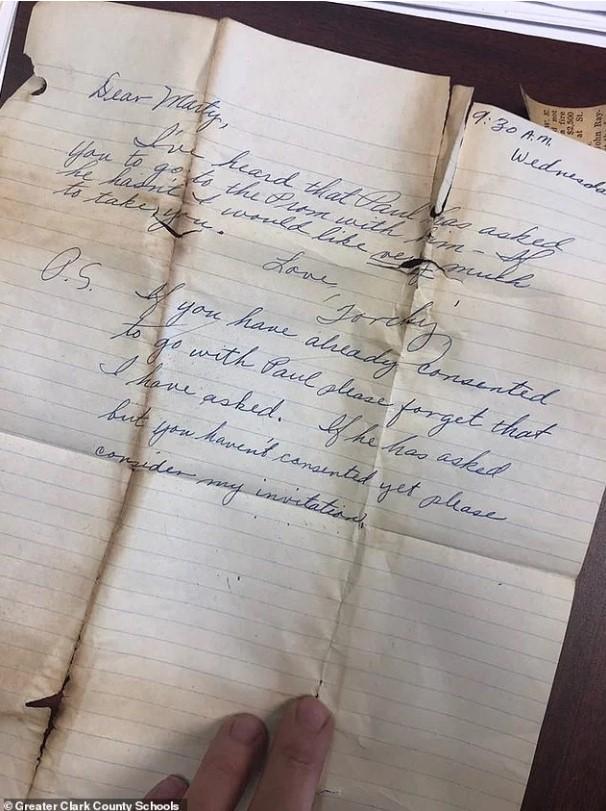 9:30 A.M.
Wednesda
Dear Marty,
I've heard that Paul has asked
you to go to the Prom with him - If
he hasn't I would like very much
to take you.
Love,
'Torchy'
P.S. If you have already consented
to go with Paul please forget that
I have asked. If he has asked
but you haven't consented yet please
consider my invitation.
ohn Ray-
at St.
$2,500
a fire
© Greater Clark County Schools